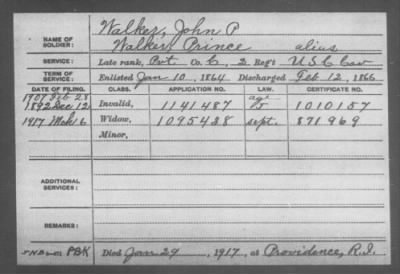 NAME OF SOLDIER: Walker, John P
Walker, Prince alias
SERVICE: Late rank, Pvt. Co. C, 2 Reg't U S C Cav
TERM OF SERVICE: Enlisted Jan 10, 1864 Discharged Feb 12, 1866
DATE OF FILING. CLASS. APPLICATION NO. LAW. CERTIFICATE NO.
1907 Feb 28 age
1892 Dec 12 Invalid, 1141487 1010157
1917 Mch 6 Widow, 1095428 sept. 871969
Minor,
ADDITIONAL SERVICES:
REMARKS:
PBK Died Jan 29, 1917, at Providence, R.I.